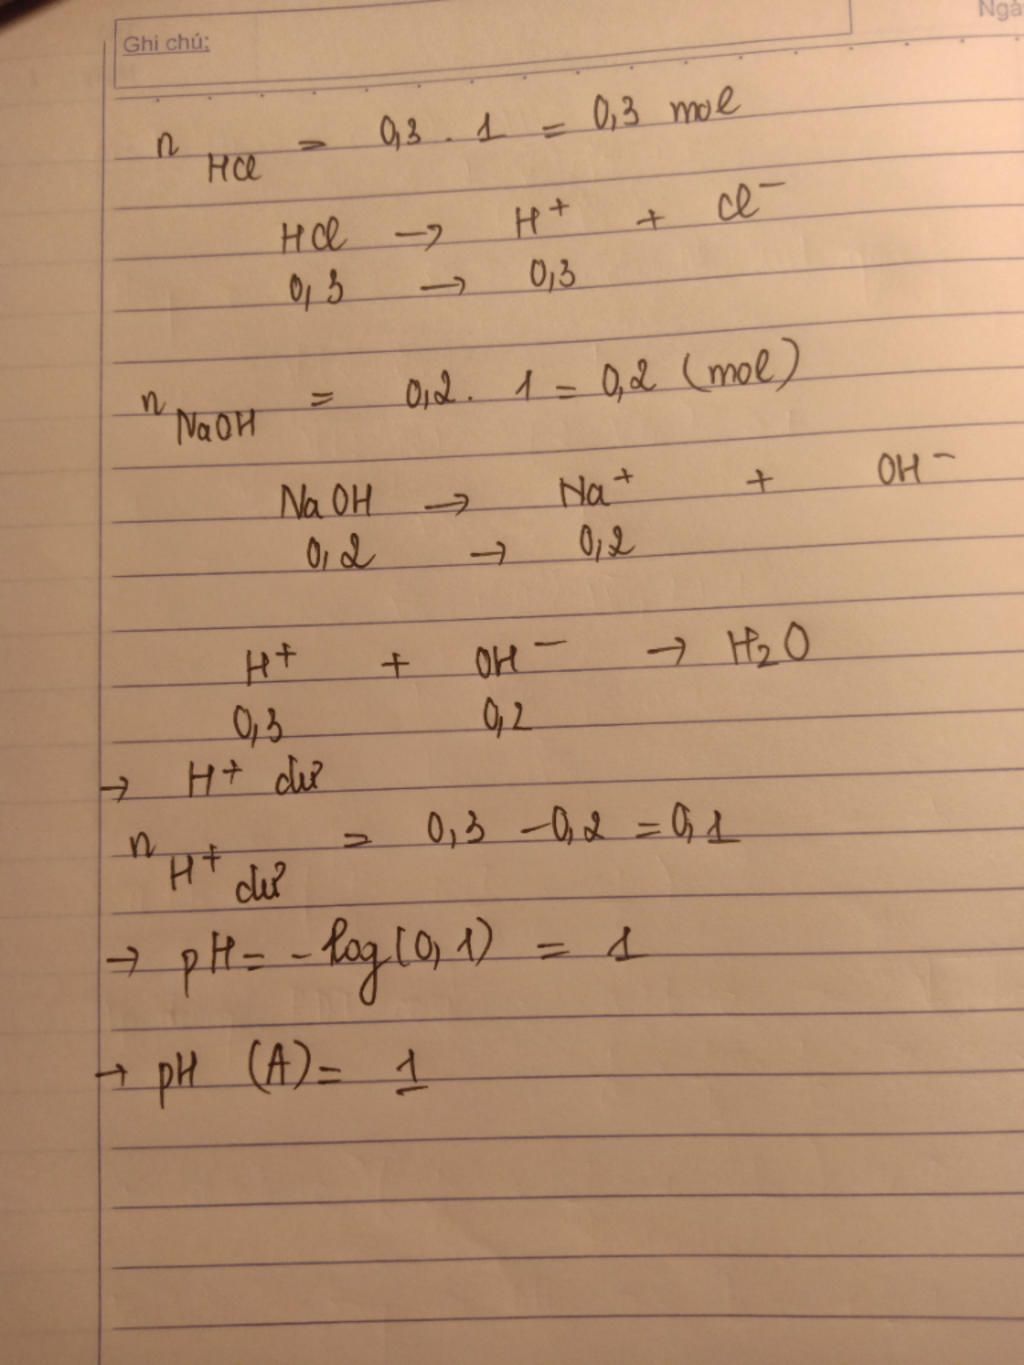 Ghi chú:
Ngà
n HCl = 0,3 . 1 = 0,3 mol
HCl → H⁺ + Cl⁻
0,3 → 0,3
n NaOH = 0,2 . 1 = 0,2 (mol)
NaOH → Na⁺ + OH⁻
0,2 → 0,2
H⁺ + OH⁻ → H₂O
0,3 0,2
→ H⁺ dư
n H⁺ dư = 0,3 - 0,2 = 0,1
→ pH = - log(0,1) = 1
→ pH (A) = 1